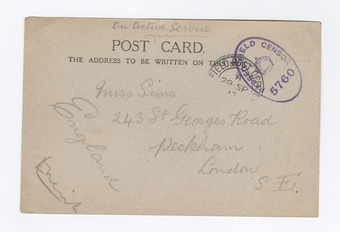 On Active Service
POST CARD.
THE ADDRESS TO BE WRITTEN ON THIS
FIELD POST OF
29 SP
17
FIELD CENSOR
PASSED
5760
Miss Sims
243 St Georges Road
Peckham
London
S. E.
England